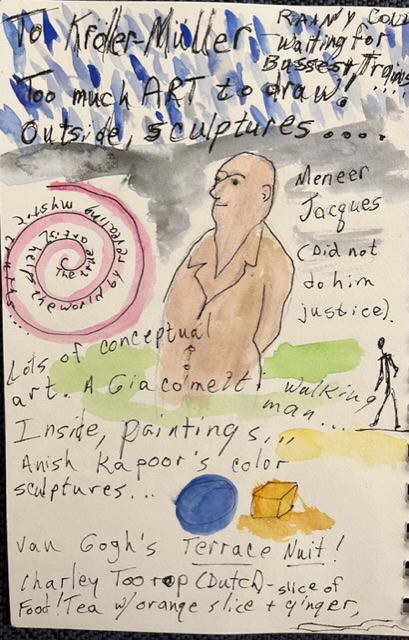 To Kröller-Müller
RAINY COLD
waiting for
Busses + Trains
Too much ART to draw! !!!!
Outside, sculptures ....
Meneer
Jacques
(Did not
do him
justice).
The true artist helps the world by revealing mystic truths...
Lots of conceptual
art. A Giacometti
walking
man...
Inside, paintings...
Anish Kapoor's color
sculptures...
Van Gogh's Terrace Nuit!
Charley Toorop (Dutch) - slice of
Food! Tea w/orange slice + ginger,